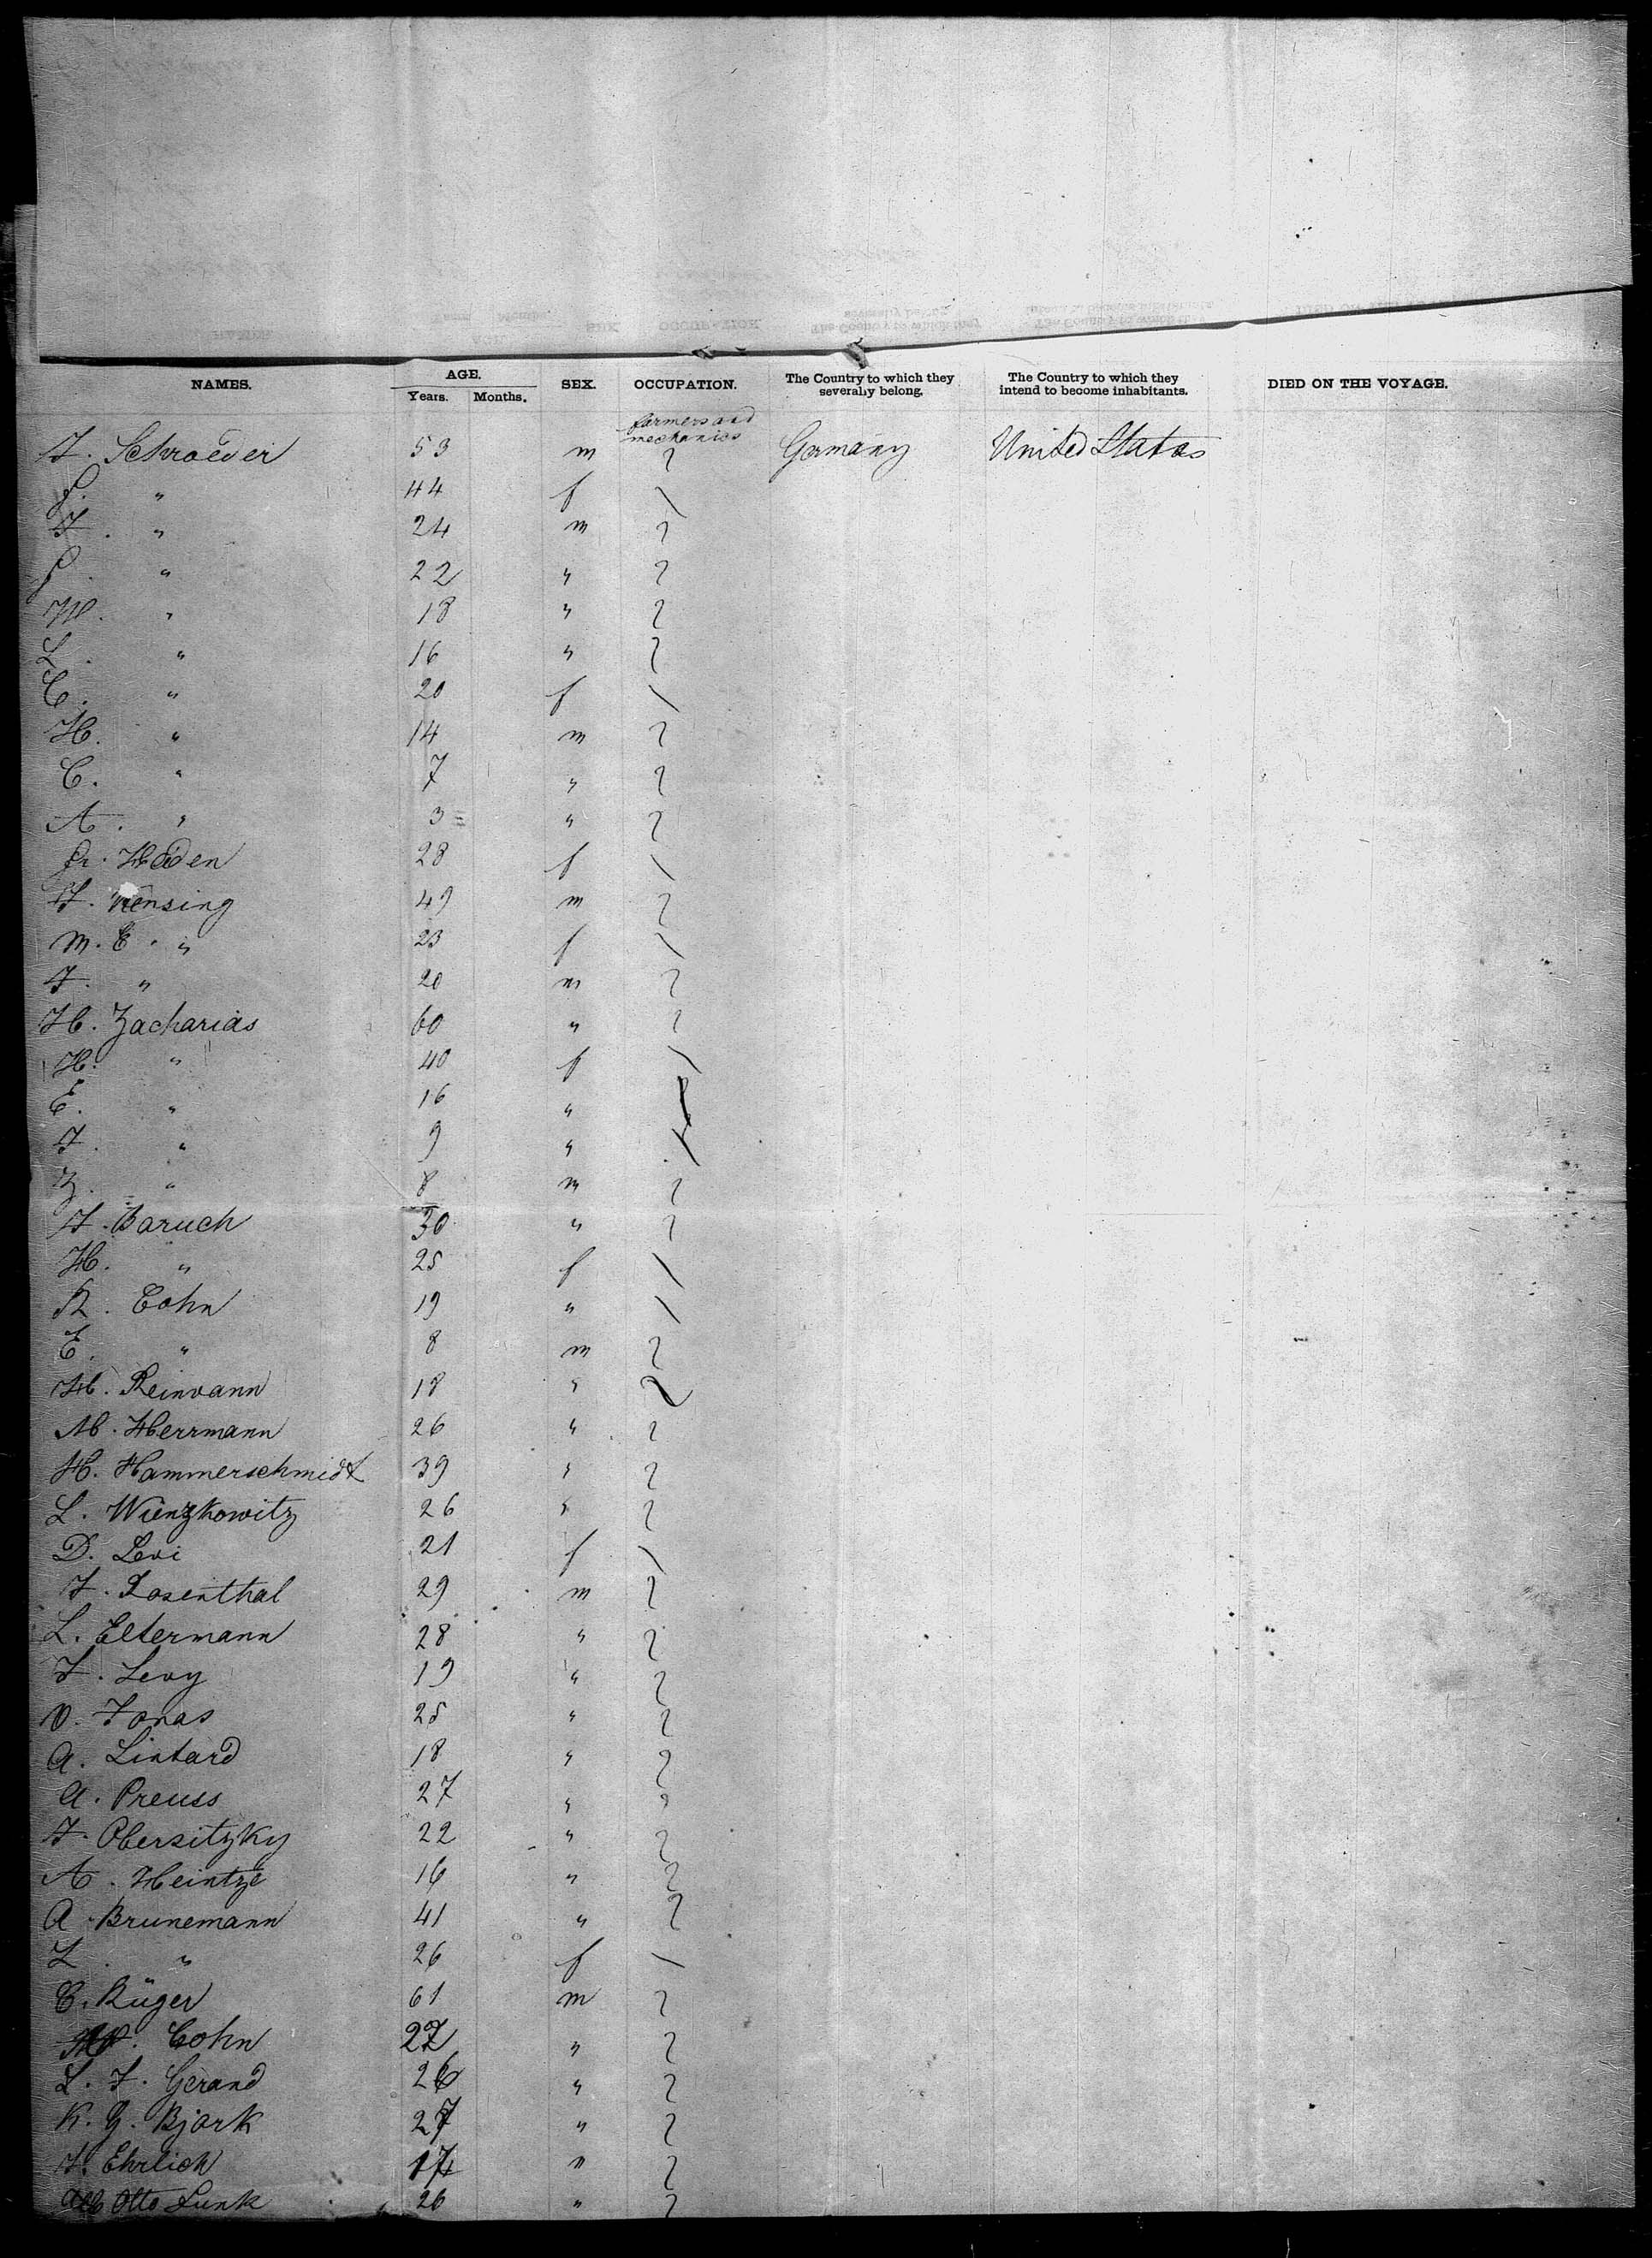 NAMES. AGE. Years. Months. SEX. OCCUPATION. The Country to which they severally belong. The Country to which they intend to become inhabitants. DIED ON THE VOYAGE.
farmers and mechanics
J. Schroeder 53 m Germany United States
" 44 f
J. " 24 m
" 22 "
M. " 18 "
L. " 16 "
C. " 20 f
H. " 14 m
C. " 7 "
A. " 3 "
Fr. Heden 28 f
J. Wensing 49 m
M. E. " 23 f
J. " 20 m
H. Zacharias 60 "
H. " 40 f
E. " 16 "
J. " 9 "
Z. " 8 m
J. Baruch 30 "
H. " 25 f
R. Cohn 19 "
E. " 8 m
H. Reinvann 18 "
M. Herrmann 26 "
H. Hammerschmidt 39 "
L. Wienzkowitz 26 "
D. Levi 21 f
J. Rosenthal 29 m
L. Eltermann 28 "
J. Levy 19 "
O. Jonas 25 "
A. Lintard 18 "
A. Preuss 27 "
J. Obersitzky 22 "
A. Heintze 16 "
A. Brunemann 41 "
L. " 26 f
C. Rüger 61 m
Cohn 27 "
L. J. Gerand 26 "
K. G. Bjork 27 "
J. Ehrlich 17 "
Otto Lunk 26 "